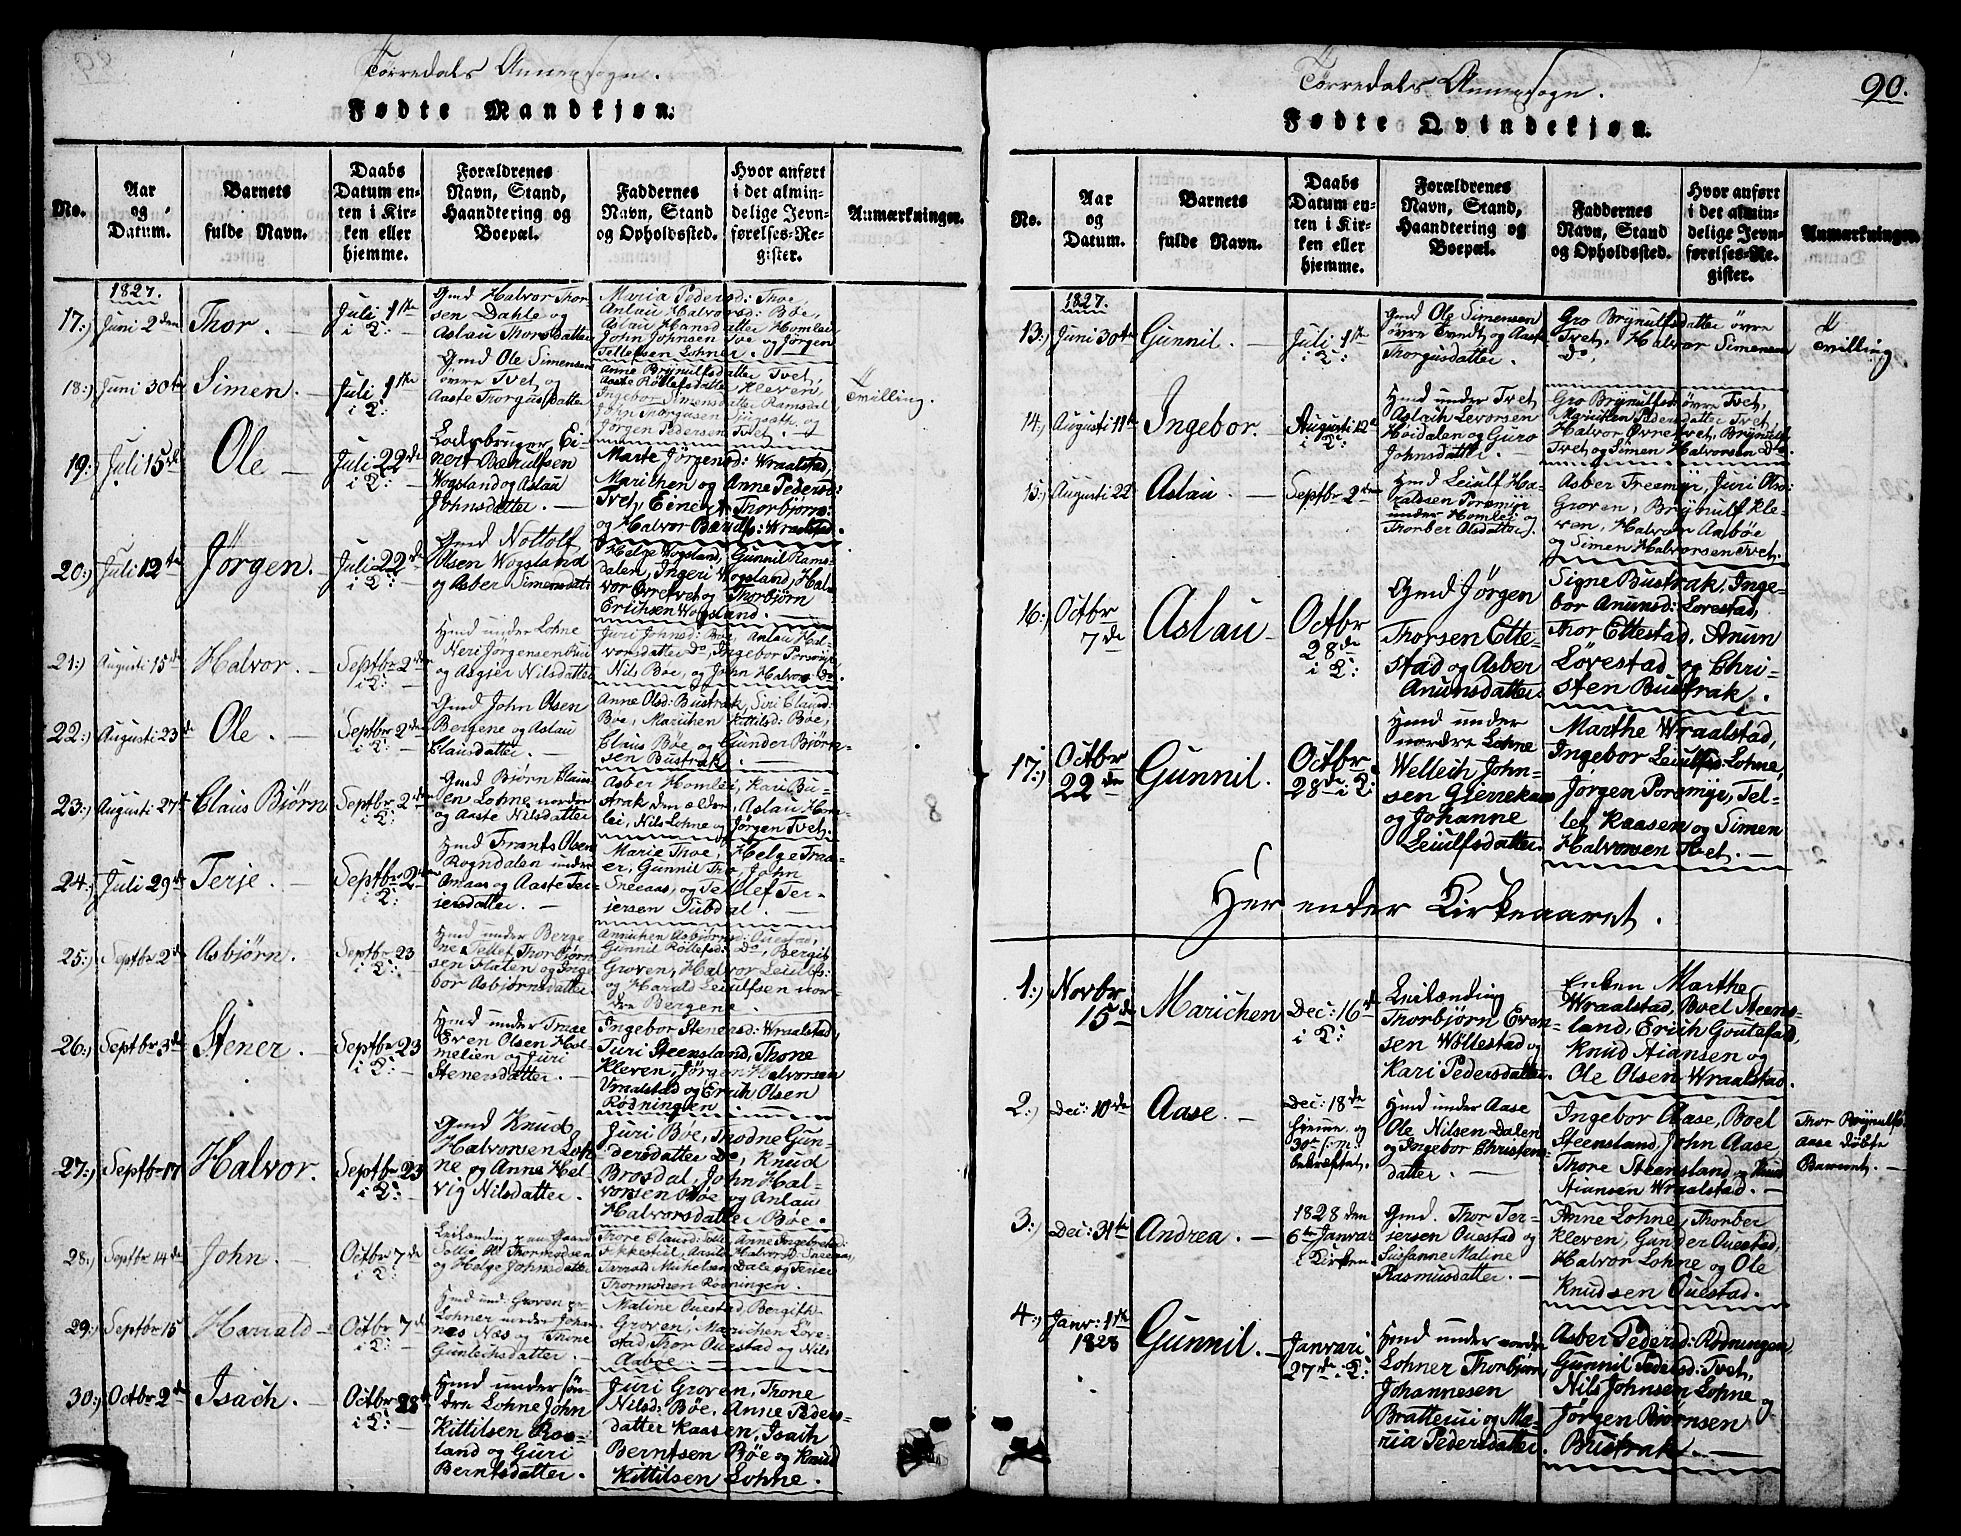 Tørredals Annexsogn.
Fødte Mandkjøn.
No.
Aar og Datum.
Barnets fulde Navn.
Daabs Datum enten i Kirken eller hjemme.
Forældrenes Navn, Stand, Haandtering og Boepæl.
Faddernes Navn, Stand og Opholdssted.
Hvor anført i det almindelige Jevnførelses-Register.
Anmærkninger.
1827.
17:) Juni 2den Thor. Juli 1ste i K:
Gmd Halvor Thorsen Dahle og Aslau Thorsdatter
Maria Pedersd: Thoe, Anlau Halvorsd: Bøe, Aslau Hansdatter Homlei, John Johnsen Tvet og Jørgen Tellefsen Lohner.
18:) Juni 30te Simen. Juli 1ste i K:
Gmd Ole Simensen øvre Tvet og Aaste Thorgusdatter
Anne Brynulfsdatter Tvet, Aaste Rollefsdatter Kleven, Ingebor Simensdatter Ramsdal, John Thorgusen og Jørgen Pedersen Tvet.
Tvilling.
19:) Juli 15de Ole Juli 22de i K:
Einert Bærulfsen Wogsland og Aslau Johnsdatter.
Marte Jørgensd: Wraalstad, Marichen og Anne Pedersd: Tvet, Einert Thorbjorns: og Halvor Bærulfs: Wraalstad.
20:) Juli 12te Jørgen. Juli 22de i K:
Gmd Nottolf Olsen Wogsland og Asber Simensdatt:
Helge Wogsland, Gunnil Ramsdalen, Ingeri Wogsland, Halvor Øvretvet og Thorbjørn Erichsen Wogsland.
21:) Augusti 15de Halvor. Septbr 2den i K:
Hmd under Lohne Neri Jørgensen og Asgjer Nilsdatter
Juri Johnsd: Bøe, Anlau Halvorsdatter Do, Ingebor Porsmyr, Nils Bøe, og John Halvors: Do.
22:) Augusti 23de Ole. Septbr 2den i K:
Gmd John Olsen Bergene og Aslau Clausdatter.
Anne Olsd: Bustrak, Siri Clausd: Bøe, Marichen Kittilsd: Bøe, Claus Bøe, og Gunder Bjørnsen Bustrak.
23:) Augusti 27de Claus Biørn Septbr 2den i K:
Gmd Bjørn Clausen Lohne nordre og Aaste Nilsdatter
Asber Homlei, Kari Bustrak den ældre, Aslau Homlei, Nils Lohne og Jørgen Tvet.
24:) Juli 29de Terje. Septbr 2den i K:
Hmd Frants Olsen Rogndalen under Amaas og Aaste Terjersdatter.
Marie Thoe, Helge Traaer, Gunnil Tho, John Sneeaas, og Tellef Terjersen Jubdal.
25:) Septbr 2de Asbjørn. Septbr 23 i K:
Hmd under Bergene Tellef Thorbjørnsen Flaten og Ingebor Asbjørnsdatter
Annichen Asbjørnsd: Ouestad, Gunnil Rollefsd: Do, Bergit Groven, Halvor Leiulfs: og Harald Leiulfsen nordre Bergene.
26:) Septbr 3de Stener. Septbr 23 i K:
Hmd under Traae Even Olsen Holmelien og Juri Stenersdatter.
Ingebor Stenersd: Wraalstad, Turi Steensland, Thone Kleven, Jørgen Halvorsen Vraalstad og Erich Olsen Rødningen.
27:) Septbr 17 Halvor. Septbr 23 i K:
Gmd Knud Halvorsen Lohne og Anne Helvig Nilsdatter.
Juri Bøe, Thodne Gundersdatter Do, Knud Brosdal, John Halvorsen Bøe og Anlau Halvorsdatter Bøe.
28:) Septbr 14de John. Octbr 7de i K:
Leilænding paa Gaard Sollie Ole Thormodsen og Helge Johnsdatter
Thore Clausd: Sollie, Anne Ingebretsd: Fikkestul, Halvorsd: Sneeaas, Michelsen Dale og Tener Thormodsen Rødningen.
29:) Septbr 15 Harald Octbr 7de i K:
Hmd und: Groven Lohner nordre Johannes Næs og Thone Gunleichsdatter.
Maline Ouestad, Bergith Groven, Marichen Lørestad, Thor Ouestad og Nils Aabøe.
30:) Octbr 2de Isach. Octbr 28de i K:
Hmd under søndre Lohne John Kittilsen Rosland og Guri Berntsdatter.
Juri Groven, Thone Nilsd: Bøe, Anne Pedersdatter Kaasen, Isach Berntsen Bøe og Knud Kittilsen Lohne.
Tørredals Annexsogn.
90.
Fødte Qvindekjøn.
No.
Aar og Datum.
Barnets fulde Navn.
Daabs Datum enten i Kirken eller hjemme.
Forældrenes Navn, Stand, Haandtering og Boepæl.
Faddernes Navn, Stand og Opholdssted.
Hvor anført i det almindelige Jevnførelses-Register.
Anmærkninger.
1827.
13:) Juni 30te Gunnil. Juli 1ste i K:
Gmd Ole Simensen øvre Tvedt og Aaste Thorgusdatter.
Gro Brynulfsdatter øvre Tvet, Halvor Simensen Do.
Tvilling
14:) Augusti 11te Ingebor. Augusti 12te i K:
Hmd under Tvet Aslach Levorsen Høidalen og Guro Johnsdatter.
Gro Brynulfsd: øvre Tvet, Marichen Pedersdatter Tvet, Halvor Øvretvet, Brynulf Tvet og Simen Halvorsen Do.
15:) Augusti 22 Aslau. Septbr 2den
Hmd Leiulf Haraldsen Porsmyr under Homlei og Thorber Olsdatter.
Asber Treemyr, Juri Olsd: Groven, Brynulf Kleven, Halvor Aabøe og Simen Halvorsen Tvet.
16:) Octbr 7de Aslau Octbr 28de i K:
Gmd Jørgen Thorsen Ottestad og Asber Anunsdatter
Signe Bustrak, Ingebor Anunsd: Lorestad, Thor Ottestad, Anun Lørestad og Christen Bustrak.
17:) Octbr 22de Gunnil. Octbr 28de i K:
Hmd under nordre Lohne Welleich Johnsen Gjerrekaas og Johanne Leiulfsdatter.
Marthe Wraalstad, Ingebor Leiulfsd: Lohne, Jørgen Porsmyr, Tellef Kaasen og Simen Halvorsen Tvet.
Her ender Kirkeaaret.
1:) Novbr 15de Marichen Dec: 16de i K:
Leilænding Thorbjørn Evensen Wøllestad og Kari Pedersdatter.
Enken Marthe Wraalstad, Boel Steensland, Erich Goutestad, Knud Stiansen og Ole Olsen Wraalstad.
2:) Dec: 10de Aase. Dec: 18de hjeme og 30te i K. bekræftet.
Hmd under Aase Ole Nilsen Dalen og Ingebor Christensdatter.
Ingebor Aase, Boel Steensland, John Aase, Thore Steensland og Knud Stiansen Wraalstad.
Thor Brynulfs: Aase døbte Barnet.
3:) Dec: 31te Andrea. 1828 den 6te Januar i Kirken
Gmd. Thor Terjersen Ouestad og Susanne Maline Rasmusdatter.
Anne Lohne, Thorber Kleven, Gunder Ouestad, Halvor Lohne og Ole Knudsen Ouestad.
4:) Janr: 1ste 1828 Gunnil. Janvari 27de i K:
Hmd under nordre Lohner Thorbjørn Johannesen Bratterui og Maria Pedersdatter.
Asber Pedersd: Rødningen, Gunnil Pedersd: Tvet, Nils Johnsen Lohne og Jørgen Bjørnsen Bustrak.